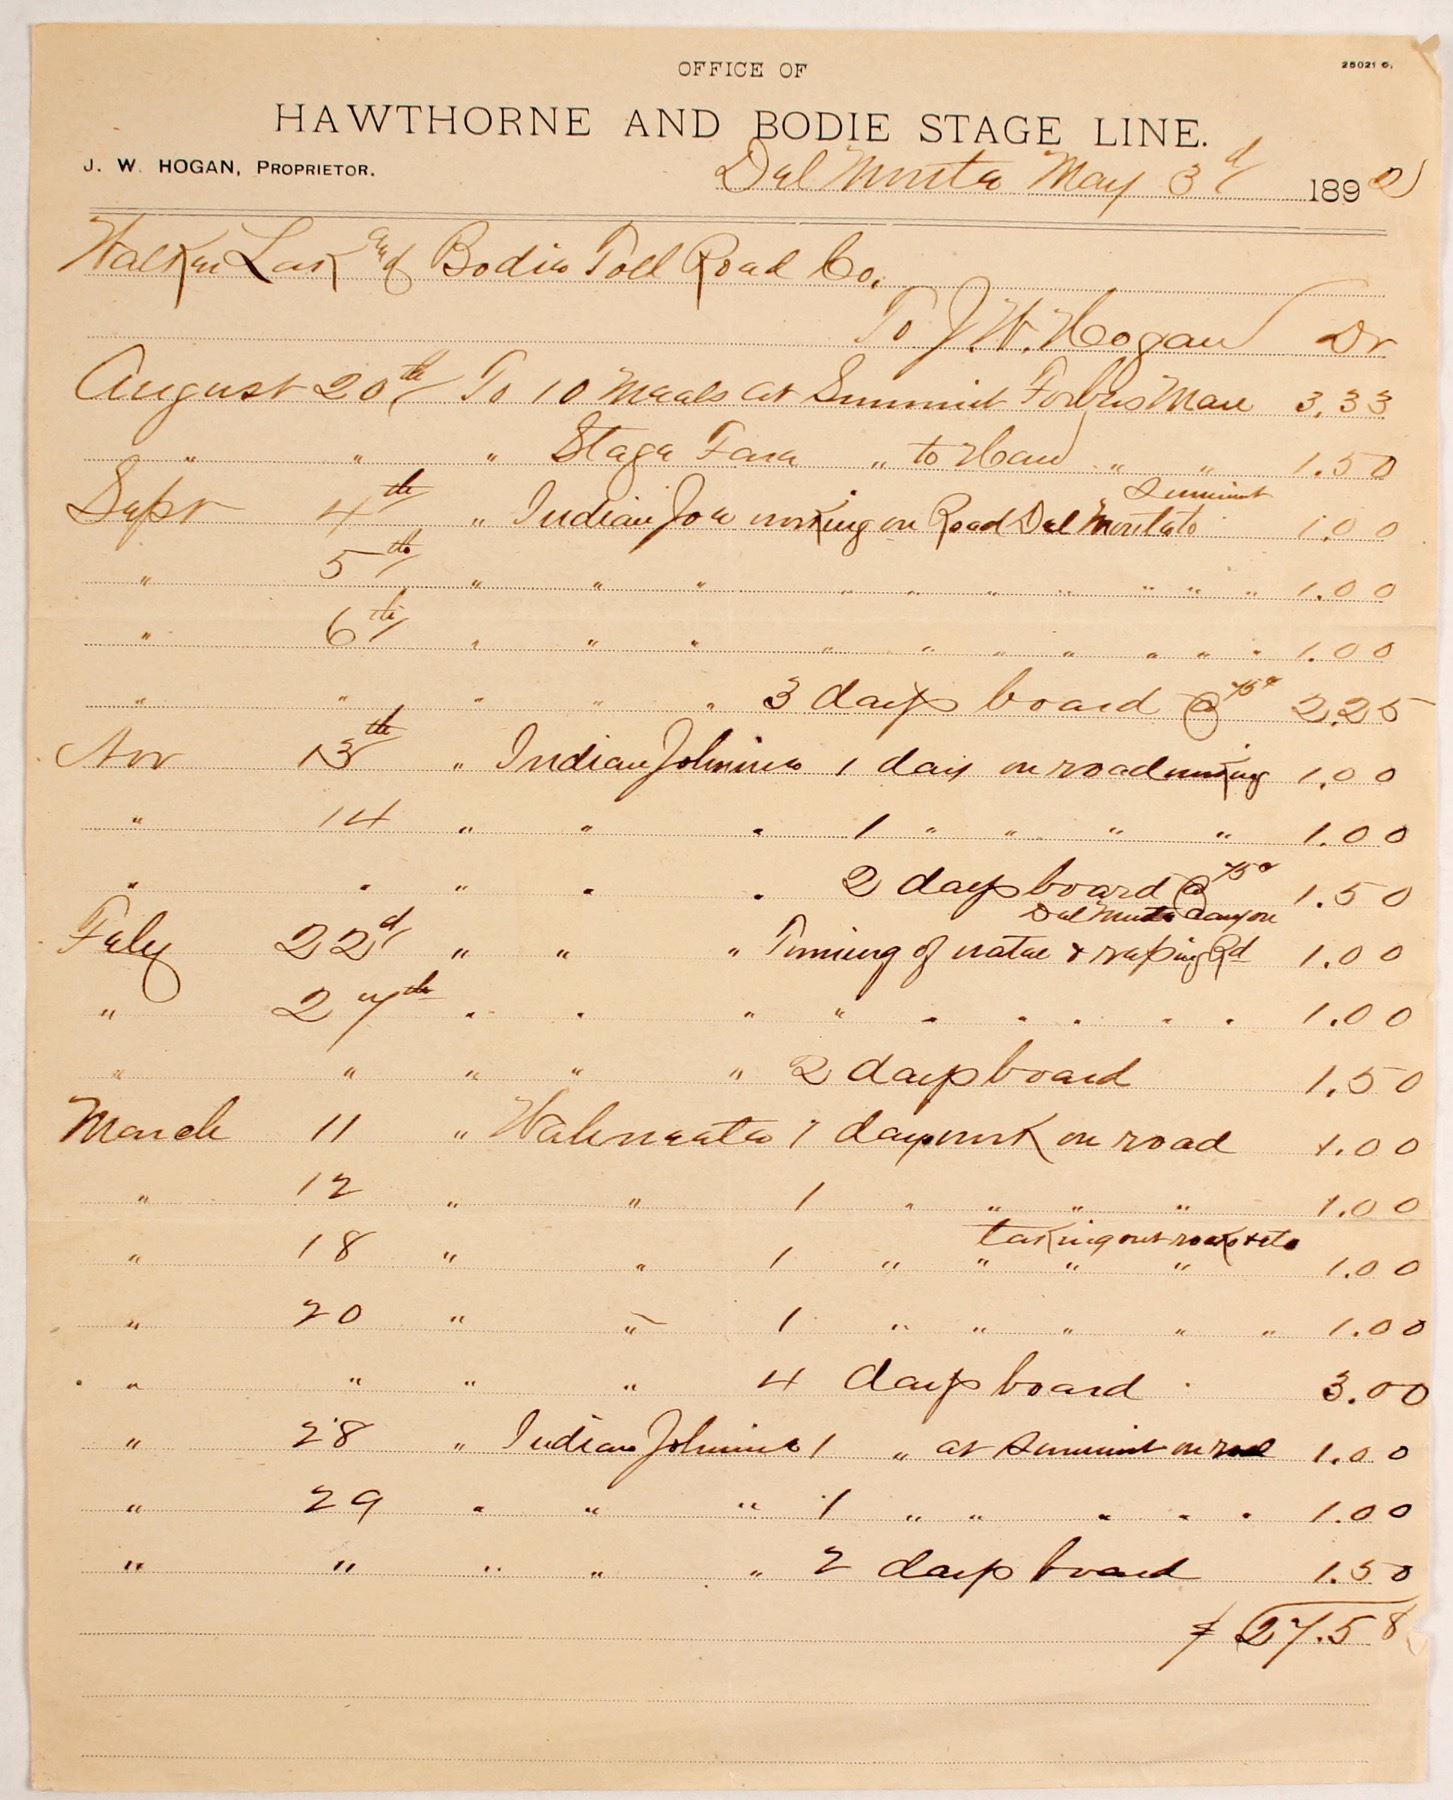 25021 C.
OFFICE OF
HAWTHORNE AND BODIE STAGE LINE.
J. W. HOGAN, PROPRIETOR.
Del Monte May 3d 1892
Walker Lak and Bodie Toll Road Co.
To J. W. Hogan Dr
August 20th To 10 Meals at Summit Forbes Mare 3.33
" " " Stage Fare " to Haw " " 1.50
Summit
Sept 4th " Indian Joe working on Road Del Monte to 1.00
" 5th " " " " " " " " " " 1.00
" 6th " " " " " " " " " " 1.00
" " " " " 3 days board @ 75c 2.25
Nov 13th " Indian Johnnie 1 day on road working 1.00
" 14 " " " 1 " " " " 1.00
" " " " " 2 days board @ 75c 1.50
Del Monte Canyon
Feby 22d " " " Turning of water & Rd 1.00
" 27th " " " " " " " " " 1.00
" " " " " 2 days board 1.50
March 11 " 1 days work on road 1.00
" 12 " " 1 " " " " 1.00
taking out rocks etc
" 18 " " 1 " " " " 1.00
" 20 " " 1 " " " " " 1.00
" " " " 4 days board 3.00
" 28 " Indian Johnnie 1 " at Summit on road 1.00
" 29 " " " 1 " " " " " 1.00
" " " " " 2 days board 1.50
$ 27.58